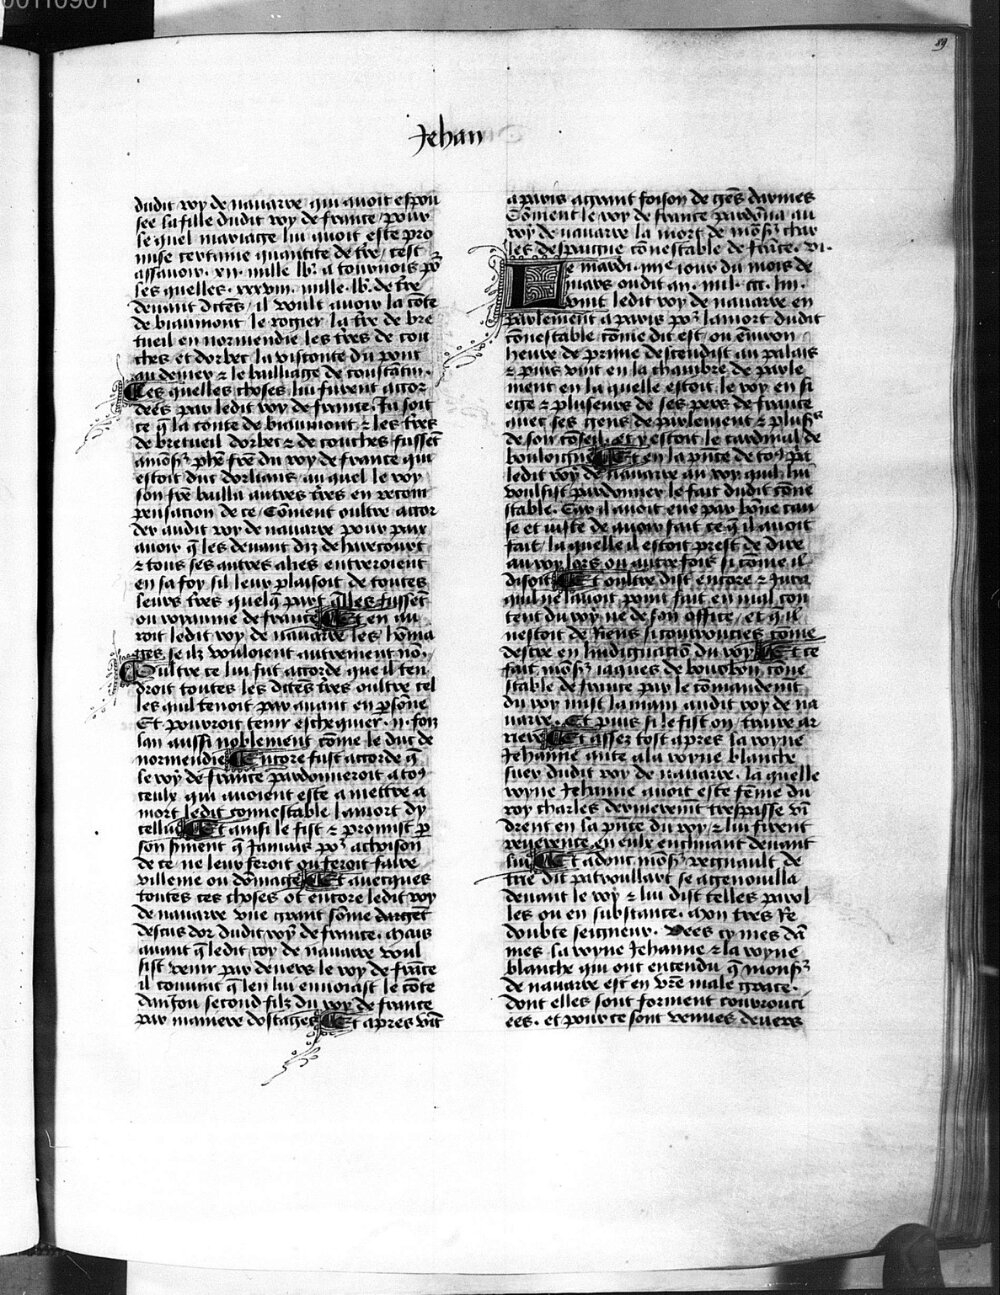 00110901
89
Jehan
dudit roy de nauarre qui auoit espou
see la fille dudit roy de france / pour
le quel mariage lui auoit este pro
mise certaine quantite de tr̄e / cest
assauoir . xii . mille lb̄ . a tournois po²
les quelles . xxxviii . mille . lb̄ . de tr̄e
deuant dictes / il voult auoir la cōte
de biaumont le rogier la tr̄e de bre
tueil en normendie les tr̄es de con
ches et dorbec la visconte du pont
au demer ⁊ le bailliage de constātin .
Les quelles choses lui furent accor
dees par ledit roy de france / Ja soit
ce q̄ la conte de biaumont ⁊ les tr̄es
de bretueil dorbec ⁊ de conches fussēt
a mōs² phē fr̄e du roy de france qui
estoit duc dorliens au quel le roy
son fr̄e bailla autres tr̄es en recom
pensacion de ce / Cōment oultre accor
der audit roy de nauarre pour paix
auoir q̄ les deuant diz de harecourt
⁊ tous ses autres aliez entreroient
en sa foy sil leur plaisoit de toutes
leurs tr̄es quelq̄ part q̄lles fussēt
ou royaume de france Et en au
roit ledit roy de nauarre les hōma
ges se ilz vouloient autrement nō .
Oultre ce lui fut accorde que il ten
droit toutes les dictes tr̄es oultre cel
les quil tenoit par auant en p̄sōne
Et pourroit tenir eschequier . ii . foiz
lan aussi noblement cōme le duc de
normendie Encore fust accorde q̄
le roy de france pardonneroit a to⁹
ceulx qui auoient este a mettre a
mort ledit connestable la mort dy
cellui Et ainsi le fist ⁊ promist p
son s̄iment q̄ Jamais po² achoison
de ce / ne leur feroit ou feroit faire
villeine ou dōmage Et auecques
toutes ces choses ot encore ledit roy
de nauarre vne grant sōme dargēt
descus dor dudit roy de france . Mais
auant q̄ ledit roy de nauarre voul
sist venir par deuers le roy de frāce
il conuint q̄ len lui enuoiast le cōte
daniou second filz du roy de france
par maniere dostages Et apres vīt
a paris a grant foison de gēs darmes
Cōment le roy de france pardōna au
roy de nauarre la mort de mōs² char
les despaigne cōnestable de frāce . vi .
Le mardi . iiiie iour du mois de
mars oudit an . mil . ccc . liii .
vint ledit roy de nauarre en
parlement a paris po² la mort dudit
cōnestable cōme dit est / ou enuiron
heure de prime descendist au palais
⁊ puis vint en la chambre de parle
ment en la quelle estoit le roy en si
ege ⁊ pluseurs de ses pers de france
auec ses gens de parlement ⁊ plus̄s
de son cōseil / et y estoit le cardinal de
bouloigne Et en la pn̄ce de to⁹ pa
ledit roy de nauarre au roy quil lui
voulsist pardonner le fait dudit cōne
stable . Car il auoit eue par bōne cau
se et iuste de auoir fait ce q̄ il auoit
fait / la quelle il estoit prest de dire
au roy lors ou autre fois si cōme il
disoit Et oultre dist encore ⁊ iura
quil ne lauoit point fait en mal con
tent du roy ne de son office / et q̄ il
nestoit de riens si courroucies cōme
destre en lindignacion du roy Et ce
fait mōs² iaques de bourbon cōne
stable de france par le cōmandemēt
du roy mist la main audit roy de na
uarre . Et puis si le fist on traire ar
riere Et assez tost apres la royne
Jehanne ante ⁊ la royne blanche
suer dudit roy de nauarre . la quelle
royne Jehanne auoit este fēme du
roy charles derrenemēt trespasse vi
drent en la pn̄ce du roy / ⁊ lui firent
reuerence en eulx enclinant deuant
lui Et adonc mōs² regnault de
trie dit patroullart se agenoulla
deuant le roy ⁊ lui dist telles parol
les ou en substance . Mon tres Re
doubte seigneur . Vees cy mes da
mes la royne Jehanne ⁊ la royne
blanche qui ont entendu q̄ mons²
de nauarre est en vr̄e male grace .
dont elles sont forment courrouci
ees . et pour ce sont venues deuers